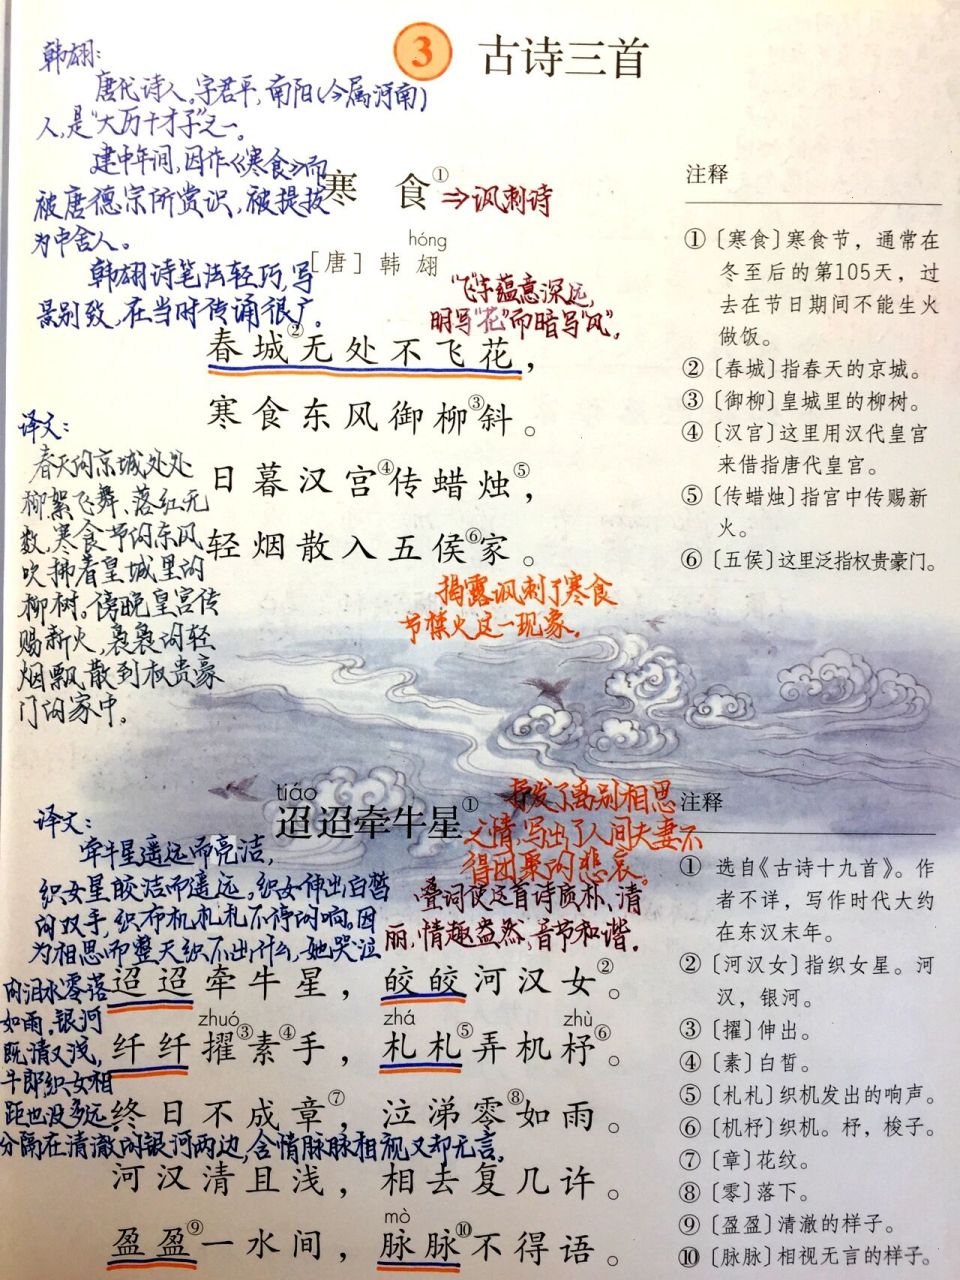 3 古诗三首
韩翃：
唐代诗人。字君平，南阳(今属河南)
人，是“大历十才子”之一。
建中年间，因作《寒食》而
被唐德宗所赏识，被提拔
为中舍人。
韩翃诗笔法轻巧，写
景别致，在当时传诵很广。
寒食①
⇒讽刺诗
hóng
［唐］韩翃
“飞”字蕴意深远，
明写“花”而暗写“风”。
春城②无处不飞花，
寒食东风御柳③斜。
日暮汉宫④传蜡烛⑤，
轻烟散入五侯⑥家。
揭露讽刺了寒食
节禁火这一现象。
译文：
春天的京城处处
柳絮飞舞、落红无
数，寒食节的东风
吹拂着皇城里的
柳树。傍晚皇宫传
赐新火，袅袅的轻
烟飘散到权贵豪
门的家中。
注释
①〔寒食〕寒食节，通常在
冬至后的第105天，过
去在节日期间不能生火
做饭。
②〔春城〕指春天的京城。
③〔御柳〕皇城里的柳树。
④〔汉宫〕这里用汉代皇宫
来借指唐代皇宫。
⑤〔传蜡烛〕指宫中传赐新
火。
⑥〔五侯〕这里泛指权贵豪门。
tiáo
迢迢牵牛星①
抒发了离别相思
之情，写出了人间夫妻不
得团聚的悲哀。
叠词使这首诗质朴、清
丽，情趣盎然，音节和谐。
译文：
牵牛星遥远而亮洁，
织女星皎洁而遥远。织女伸出白皙
的双手，织布机札札不停的响。因
为相思而整天织不出什么，她哭泣
的泪水零落
如雨，银河
既清又浅，
牛郎织女相
距也没多远，
分隔在清澈的银河两边，含情脉脉相视又却无言。
迢迢牵牛星，皎皎河汉女②。
zhuó zhá zhù
纤纤擢③素④手，札札⑤弄机杼⑥。
终日不成章⑦，泣涕零⑧如雨。
河汉清且浅，相去复几许。
mò
盈盈⑨一水间，脉脉⑩不得语。
注释
① 选自《古诗十九首》。作
者不详，写作时代大约
在东汉末年。
②〔河汉女〕指织女星。河
汉，银河。
③〔擢〕伸出。
④〔素〕白皙。
⑤〔札札〕织机发出的响声。
⑥〔机杼〕织机。杼，梭子。
⑦〔章〕花纹。
⑧〔零〕落下。
⑨〔盈盈〕清澈的样子。
⑩〔脉脉〕相视无言的样子。